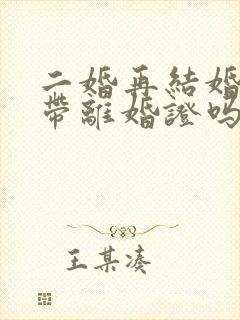 二婚再結婚
帶離婚證嗎
王某湊